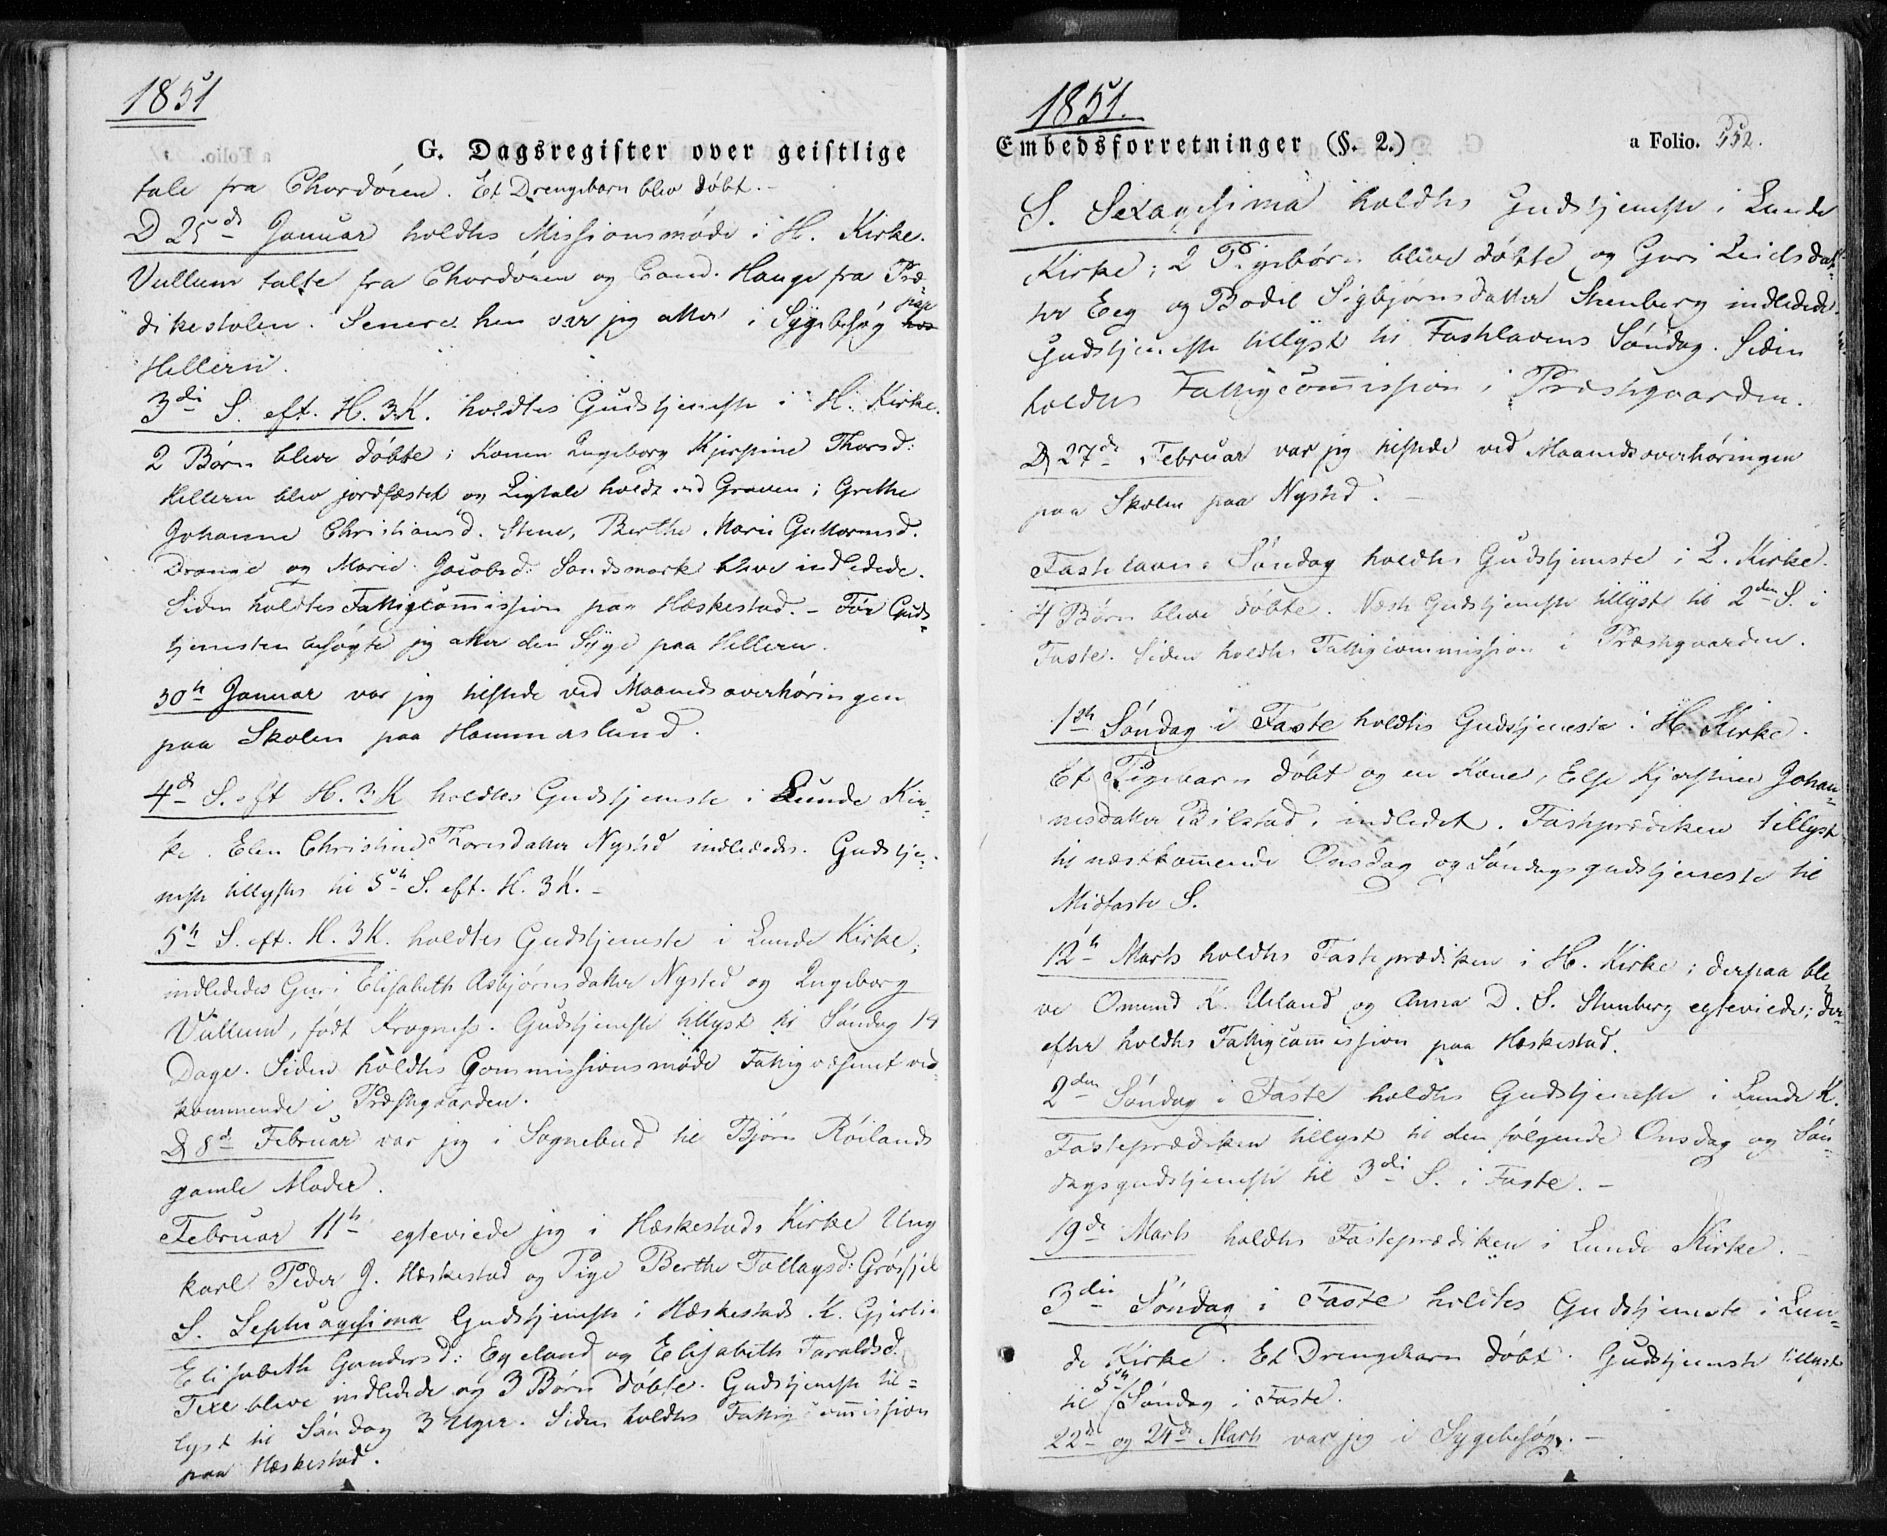 1851
G. Dagsregister over geistlige
tale fra Chordøren. Et Drengebarn blev døbt. -
D 25de Januar holdtes Missionsmøde i H. Kirke.
Vullum talte fra Chordøren og Cand. Hauge fra Præ-
dikestolen. Senere hen var jeg atter i Sygebesøg hos paa
Hellern.
3die S. eft. H. 3 K. holdtes Gudstjeneste i H. Kirke.
2 Børn bleve døbte; Konen Ingeborg Kjerstine Thorsd:
Hellern blev jordfæstet og Ligtale holdt ved Graven; Grethe
Johanne Christiansd. Stene, Berthe Marie Guttormsd.
Drange og Marie Jacobsd: Sandsmark bleve indledede.
Siden holdtes Fattigcommission paa Hæskestad. - Før Guds-
tjenesten besøgte jeg atter den Syge paa Hellern.
30te Januar var jeg tilstede ved Maanedsoverhøringen
paa Skolen paa Hammerslund.
4de S. eft H. 3 K holdtes Gudstjeneste i Lunde Kir-
ke. Elen Christine Thorsdatter Nysted indlededes. Gudstje-
neste tillystes til 5te S. eft. H. 3 K. -
5te S. eft. H. 3 K. holdtes Gudstjeneste i Lunde Kirke;
indlededes Guri Elisabeth Asbjørnsdatter Nysted og Ingeborg
Vullum, født Kragness. Gudstjeneste tillyst til Søndag 14
Dage. Siden holdtes Commissionsmøde Fattigvæsenet ved-
kommende i Præstgaarden.
D 8de Februar var jeg i Sognebud til Bjørn Røilands
gamle Moder.
Februar 11te egteviede jeg i Hæskestads Kirke Ung
karl Peder J. Hæskestad og Pige Berthe Tollagsd: Grøsfjel
S. Septuagesima Gudstjeneste i Hæskestads K. Gjertine
Elisabeth Gundersd: Egeland og Elisabeth Taraldsd.
Texe bleve indledede og 3 Børn døbte. Gudstjeneste til-
lyst til Søndag 3 Uger. Siden holdtes Fattigcommission
paa Hæskestad.
1851.
Embedsforretninger (§. 2.)
a Folio. 352.
S. Sexagesima holdtes Gudstjeneste i Lunde
Kirke; 2 Pigebørn bleve døbte og Guri Leidsdat-
ter Eeg og Bodil Sigbjørnsdatter Stenberg indledede.
Gudstjeneste tillyst til Fastelavens Søndag. Siden
holdtes Fattigcommission i Præstgaarden.
D 27de Februar var jeg tilstede ved Maanedsoverhøringen
paa Skolen paa Nysted. -
Fastelavns Søndag holdtes Gudstjeneste i L. Kirke.
4 Børn bleve døbte. Næste Gudstjeneste tillyst til 2den S. i
Faste. Siden holdtes Fattigcommission i Præstgaarden.
1ste Søndag i Faste holdtes Gudstjeneste i H. Kirke.
Et Pigebarn døbt og en Kone, Else Kjerstine Johan-
nesdatter Bilstad, indledet. Fasteprædiken tillyst
til næstkommende Onsdag og Søndagsgudstjeneste til
Midfaste S.
12te Marts holdtes Fasteprædiken i H. Kirke; derpaa ble-
ve Osmund K. Ueland og Anna D. S. Stenberg egteviede; der-
efter holdtes Fattigcommission paa Hæskestad.
2den Søndag i Faste holdtes Gudstjeneste i Lunde K.
Fasteprædiken tillyst til den følgende Onsdag og Søn-
dagsgudstjeneste til 3die S. i Faste. -
19de Marts holdtes Fasteprædiken i Lunde Kirke. -
3die Søndag i Faste holdtes Gudstjeneste i Lun-
de Kirke. Et Drengebarn døbt. Gudstjeneste tillyst
til 5te Søndag i Faste.
22de og 24de Marts var jeg i Sygebesøg. -